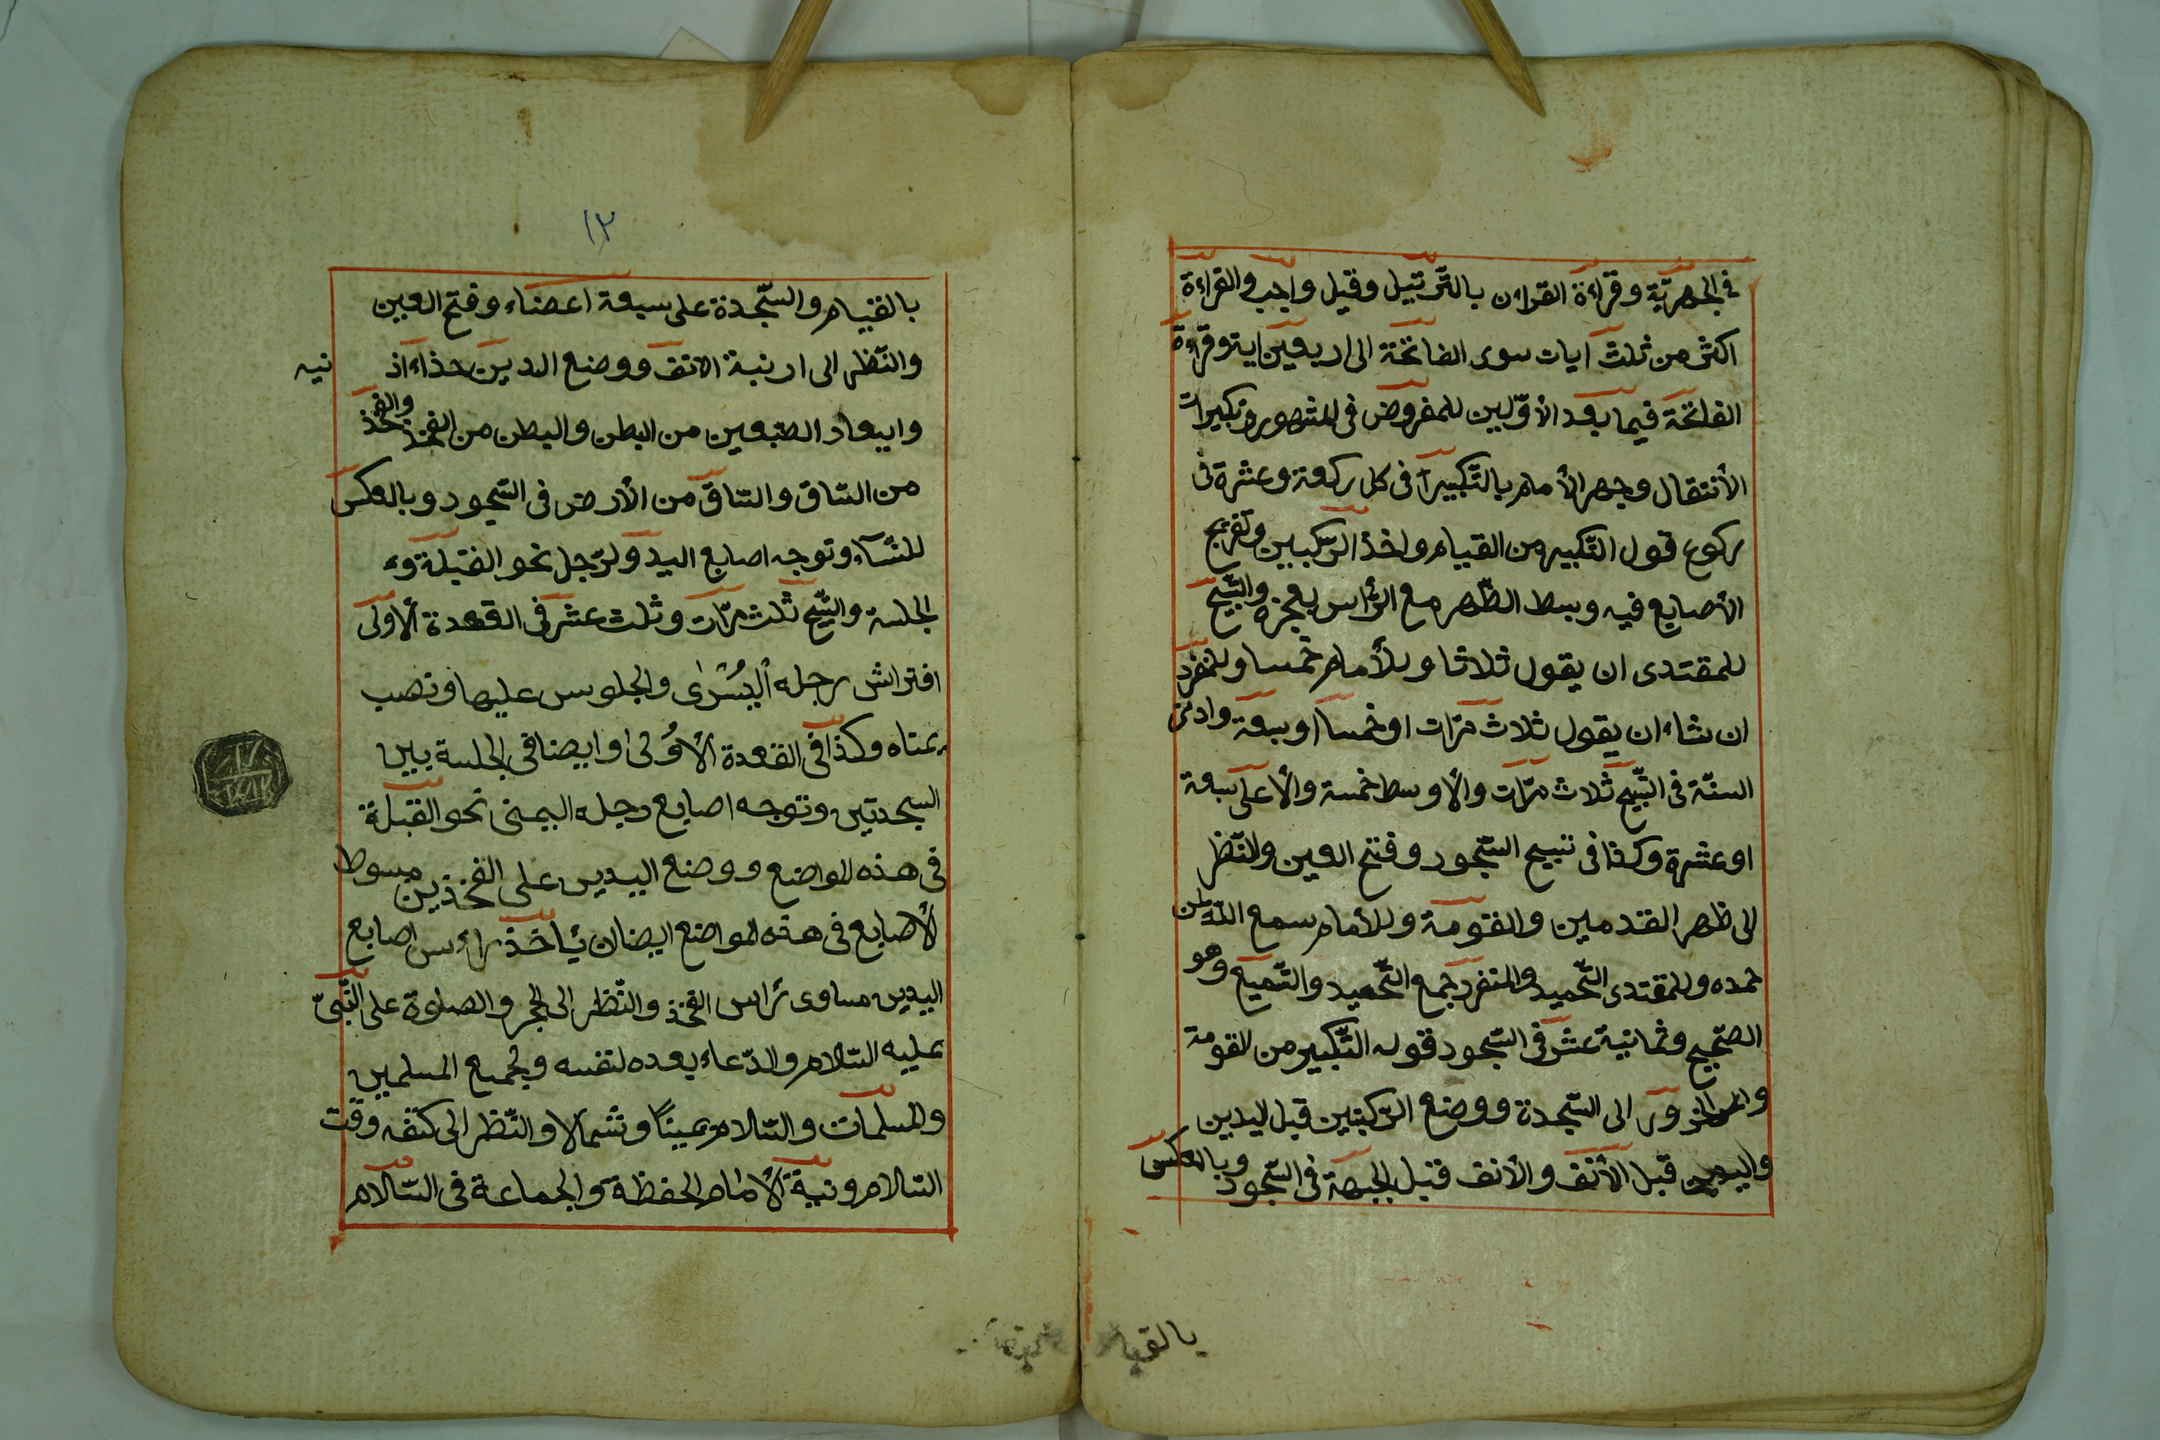 في الجهريّة وقراءة القراءن بالتّرتيل وقيل واجب والقراءة
اكثر من ثلث ايات سوى الفاتحة الى اربعين ايتو قراءة
الفاتحة فيما بعد الأوّلين للمفروض في المشهور وتكبيرات
الأنتقال وجهر الأمام بالتّكبيرآ في كل ركعة وعشرة في
ركوع قول التّكبير من القيام واخذ الرّكبين وتفريج
الأصابع فيه وبسط الظّهر مع الرّأس بعجزه والتّسبيح
للمقتدى ان يقول ثلاثا وللأمام خمسا وللمنفرد
ان شاء ان يقول ثلاث مرّات او خمسا او سبعة وادنى
السنّة في التّسبيح ثلاث مرّات والأوسط خمسة والأعلى سبعة
او عشرة وكذا في تسبيح السّجود وفتح العين والنّظر
الى ظهر القدمين والقومة وللأمام سمع اللّه لمن
حمده وللمقتدى التّحميد والمنفرد جمع التّحميد والتّسميع وهو
الصّحيح وثمانية عشر في السّجود قوله التّكبير من القومة
ور الى السّجدة ووضع الرّكبتين قبل اليدين
واليدين قبل الأنف والأنف قبل الجبهة في السّجود وبالعكس
بالقيام
١٢
بالقيام والسّجدة على سبعة اعضاء وفتح العين
والنّظر الى ارنبة الانف ووضع اليدين حذاء اذ
نيه
وابعاد الضّبعين من البطن والبطن من الفخذ والفخذ
من السّاق والسّاق من الأرض في السّجود وبالعكس
للنسآء وتوجه اصابع اليد ولرّجل نحو القبلة وء
الجلسة والتّسبيح ثلث مرّات وثلث عشر في القعدة الأولى
افتراش رجله أليُسْرٰى والجلوس عليها ونصب
يمناه وكذا في القعدة الأوُلى او ايضا في الجلسة بين
السجدتين وتوجه اصابع رجله اليمنى نحو القبلة
في هذه المواضع ووضع اليدين على الفخذين مبسوط
الأصابع في هذه المواضع ايضا ان يأخذ رأس اصابع
اليدين مساوى رأس الفخذ والنّظر الى الحجر والصلوة على النّبىّ
عليه السّلام والدّعاء بعده لنفسه ولجميع المسلمين
والمسلمات والسّلام يمينًا وشمالا والنّظر الى كتفه وقت
السّلام ونيّة الأمام الحفظة والجماعة في السّلام